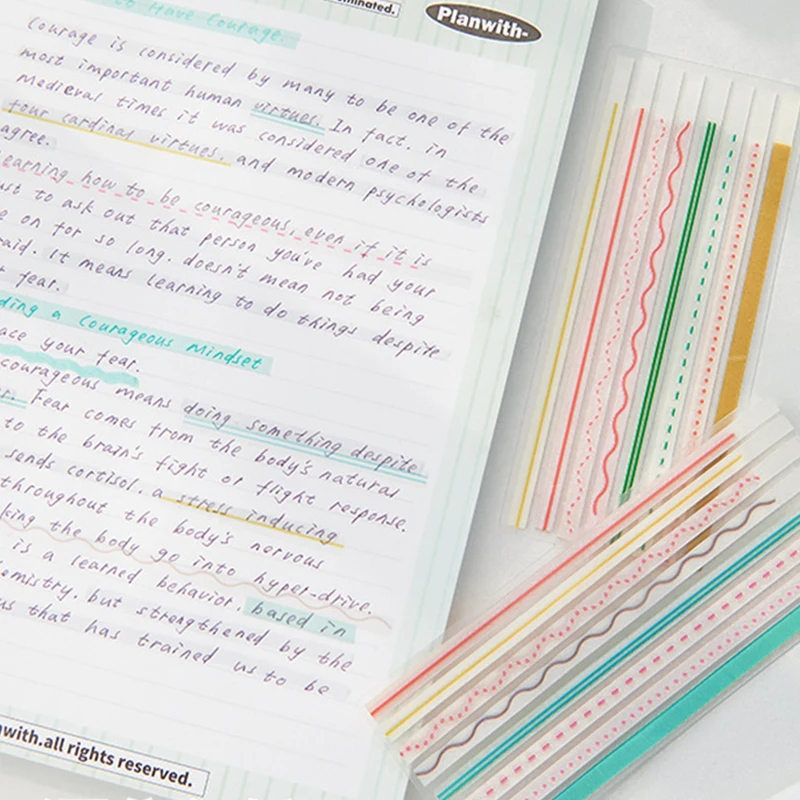 minated.
Planwith-
to Have Courage.
Courage is considered by many to be one of the
most important human virtues. In fact. in
Medieval times it was considered one of the
four cardinal virtues. and modern psychologists
agree.
earning how to be courageous, even if it is
ust to ask out that person you've had your
e on for so long. doesn't mean not being
raid. It means learning to do things despite
t fear.
ding a Courageous Mindset
ace your fear.
courageous means doing something despite
r. Fear comes from the body's natural
to the brain's fight or flight response.
sends cortisol. a stress inducing
throughout the body's nervous
king the body go into hyper-drive.
is a learned behavior. based in
emistry. but strengthened by the
us that has trained us to be
nwith.all rights reserved.